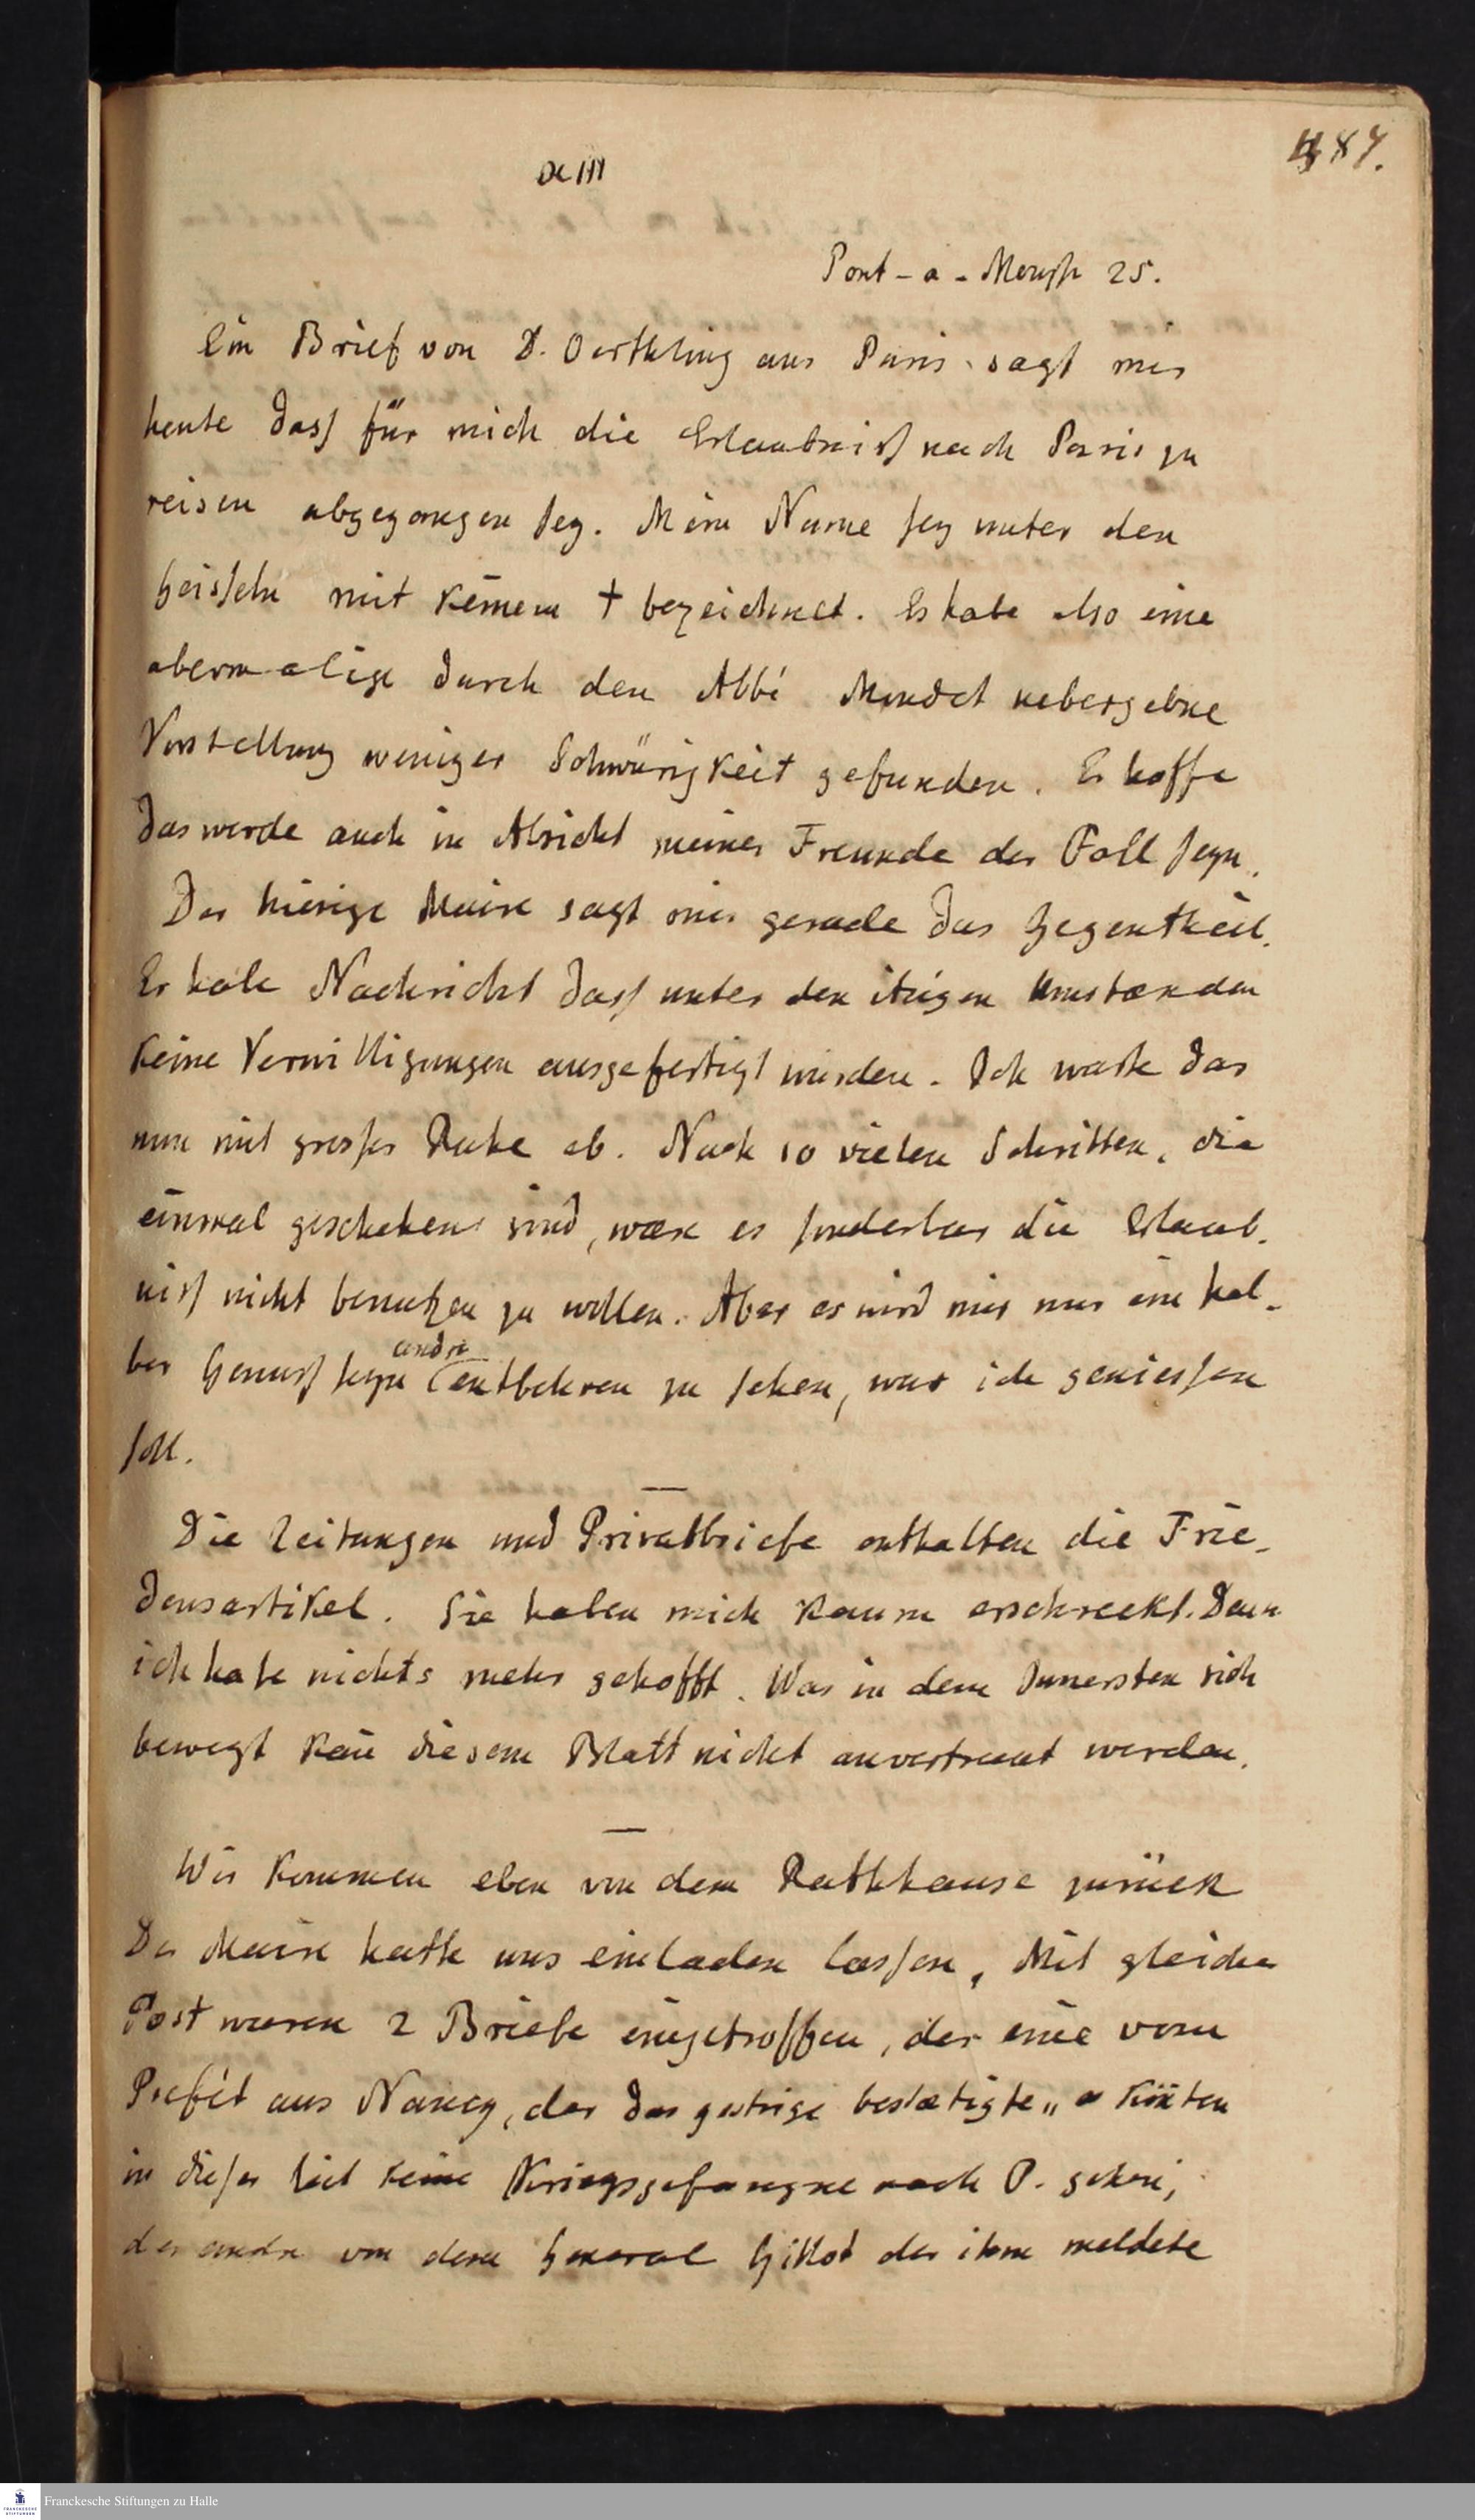 487.
Pont-a-Mouss 25.
Ein Brief von D. Oerthling aus Paris sagt mir
heute dass für mich die Erlaubniss nach Paris zu
reisen abgegangen sey. Mein Name sey unter den
Geisseln mit keinem † bezeichnet. Es habe also eine
abermalige durch den Abbé uebergebne
Vorstellung weniger Schwürigkeit gefunden. Er hoffe
das werde auch in Absicht meiner Freunde der Fall seyn.
Der hiesige Maire sagt mir gerade das Gegentheil.
Er habe Nachricht dass unter den itzigen Umstænden
keine Verwilligungen ausgefertigt würden. Ich warte das
nun mit grosser Ruhe ab. Nach so vielen Schritten, die
einmal geschehen sind, wære es sonderbar die Erlaub-
niss nicht benutzen zu wollen. Aber es wird mir nur ein hal-
ber Genuss seyn andre entbehren zu sehen, was ich geniessen
soll.
Die Zeitungen und Privatbriefe enthalten die Frie-
densartikel. Sie haben mich kaum erschreckt. Denn
ich habe nichts mehr gehofft. Was in dem Innersten sich
bewegt kan̄ diesem Blatt nicht anvertraut werden.
Wir kommen eben von dem Rathhause zurück
Der Maire hatte uns einladen lassen, Mit gleicher
Post waren 2 Briefe eingetroffen, der eine vom
Prefét aus Nancy, der das gestrige bestætigte „es kön̄ten
in dieser Zeit keine Kriegsgefangne nach P. gehen,
der andre von dem General Gillot der ihm meldete
Franckesche Stiftungen zu Halle